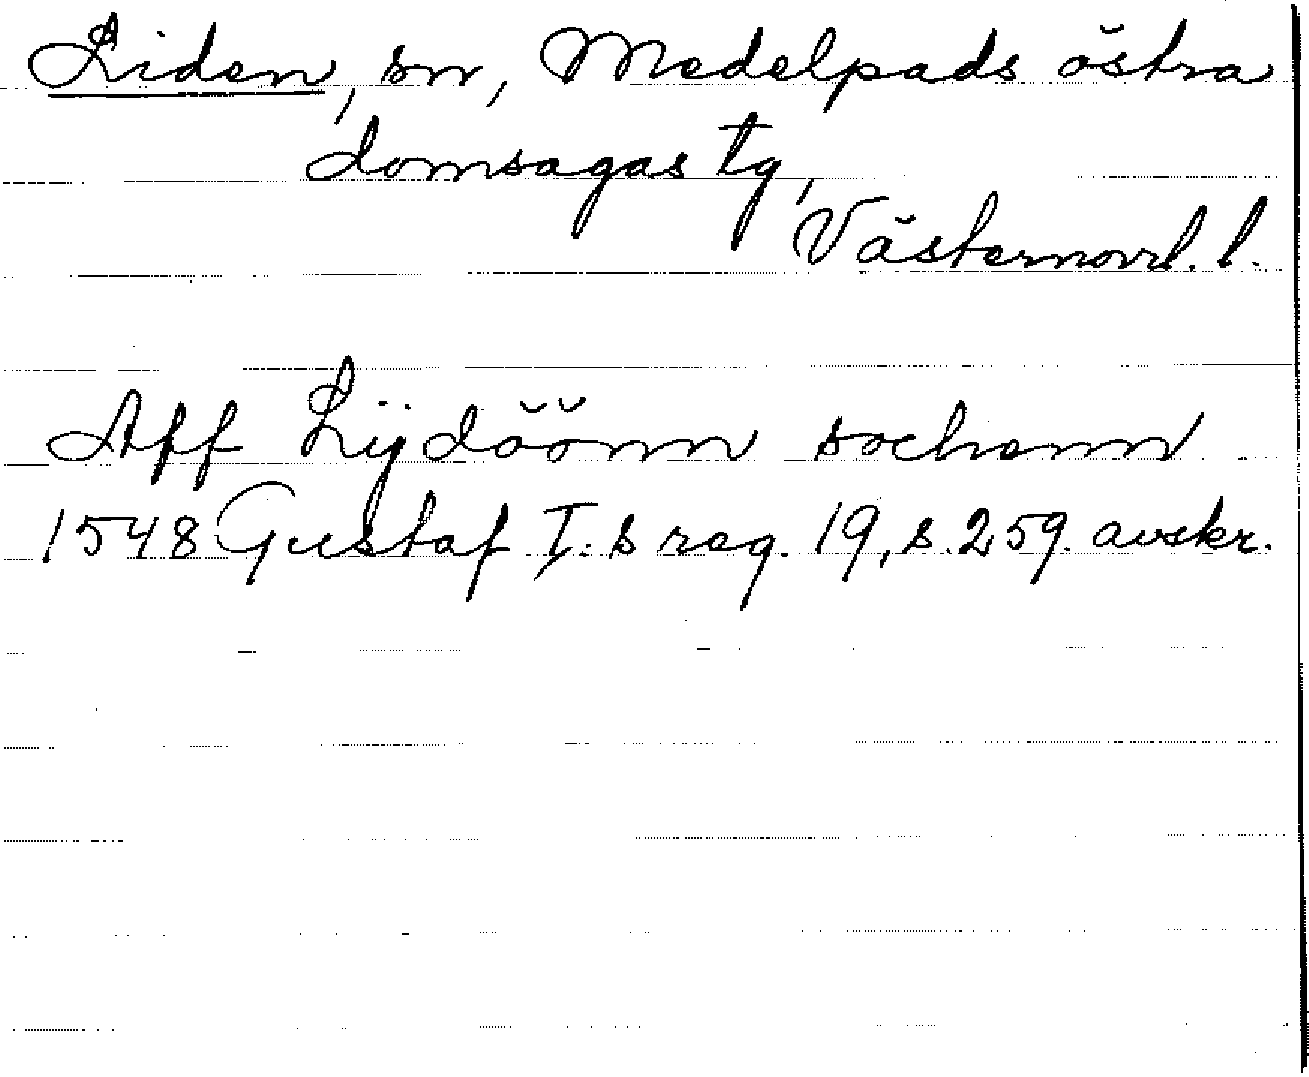 Liden, sn, Medelpads östra
domsagas tg,
Västernorrl. l.
Aff Lijdöönn sochenn
1548 Gustaf I:s reg. 19, s. 259. avskr.